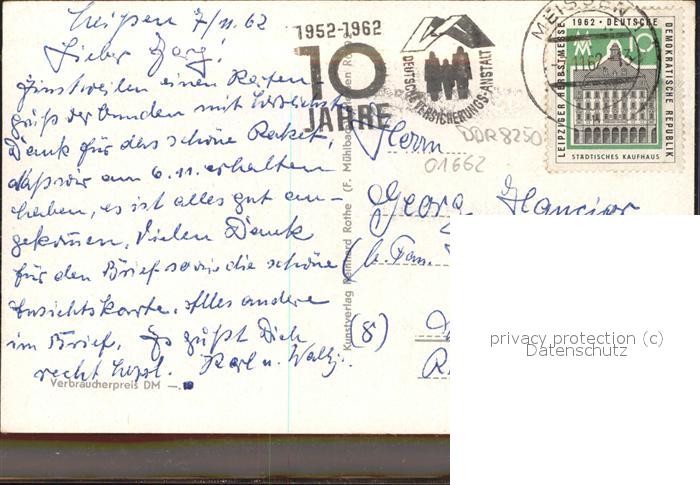 Meißen 7/11.62
Lieber Georg!
Einstweilen einen Karten
gruß verbunden mit herzlichst
Dank für das schöne Paket,
daß wir am 6.11. erhalten
haben, es ist alles gut an-
gekommen. Vielen Dank
für den Brief sowie die schöne
Ansichtskarte. Alles andere
im Brief. Es grüßt Dich
recht herzl. Karl u.
Verbraucherpreis DM
Kunstverlag Reinhard Rothe (F. Mühlbach
1952-1962
10
JAHRE
DEUTSCHE VERSICHERUNGS-ANSTALT
MEISSEN
LEIPZIGER HERBSTMESSE 1962 · DEUTSCHE DEMOKRATISCHE REPUBLIK
MM 10
STÄDTISCHES KAUFHAUS
DDR 8250
01662
Herrn
Georg
(b. Fam.
(8)
privacy protection (c)
Datenschutz